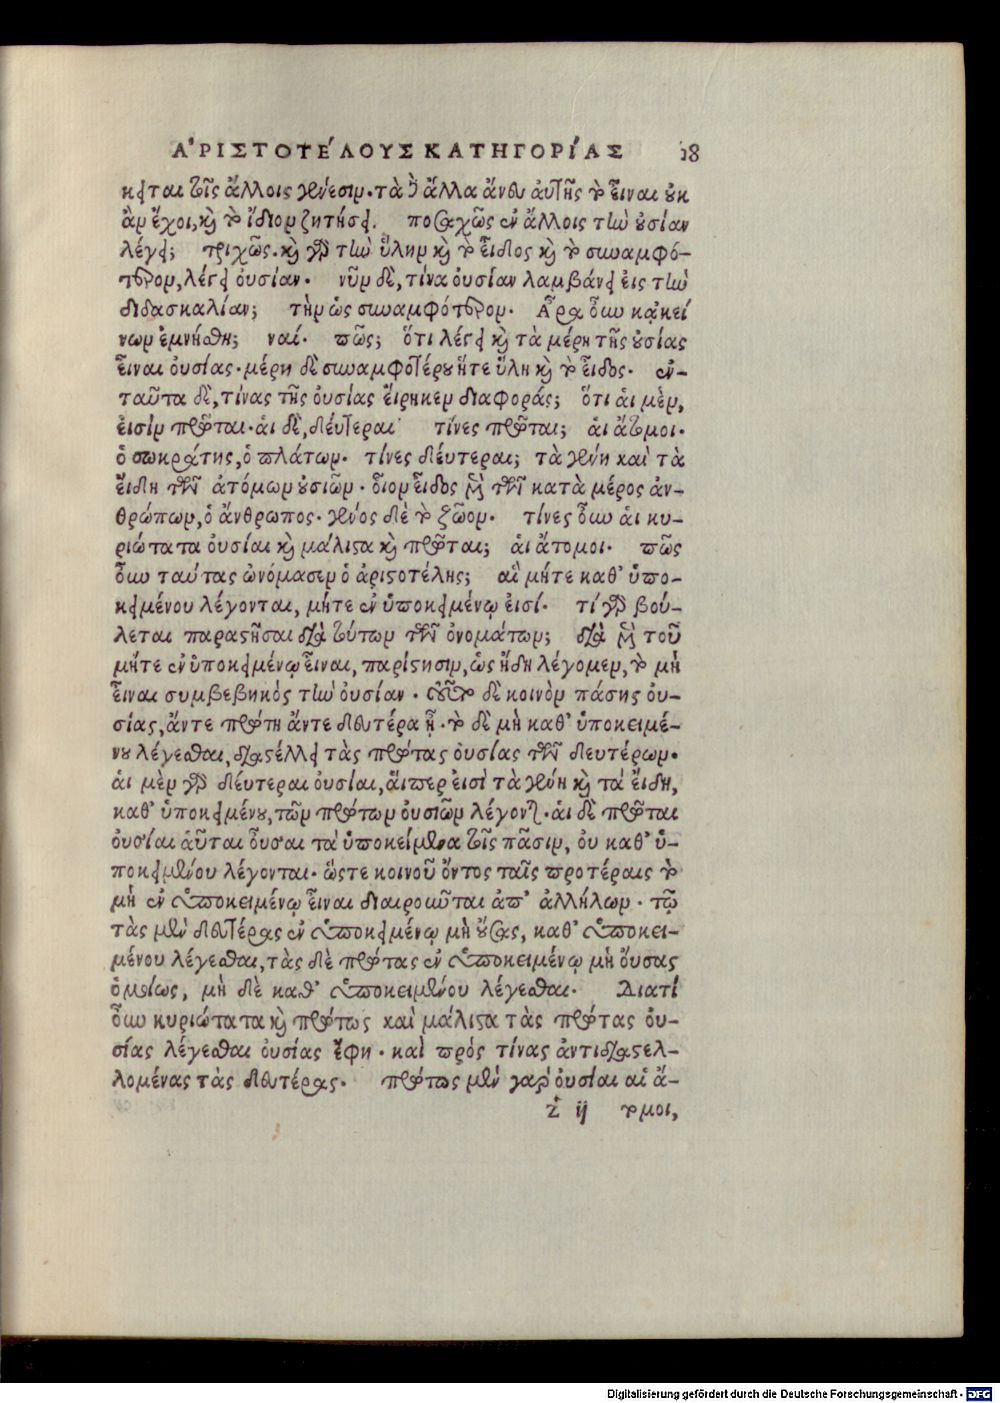 ἈΡΙΣΤΟΤΈΛΟΥΣ ΚΑΤΗΓΟΡΊΑΣ 18
κειται τοῖς ἄλλοις γένεσιν· τὰ δὲ ἄλλα ἄνευ αὐτῆς τὸ εἶναι οὐκ
ἂν ἔχοι, καὶ τὸ ἴδιον ζητήσει. ποσαχῶς ἐν ἄλλοις τὴν οὐσίαν
λέγει; τριχῶς. καὶ γὰρ τὴν ὕλην καὶ τὸ εἶδος καὶ τὸ συναμφό-
τερον, λέγει οὐσίαν· νῦν δὲ, τίνα οὐσίαν λαμβάνει εἰς τὴν
διδασκαλίαν; τὴν ὡς συναμφότερον· Ἆρα οὖν κἀκεί
νων ἐμνήσθη; ναί· πῶς; ὅτι λέγει καὶ τὰ μέρη τῆς οὐσίας
εἶναι οὐσίας· μέρη δὲ συναμφοτέρου ἥτε ὕλη καὶ τὸ εἶδος· ἐν-
ταῦτα δὲ, τίνας τῆς οὐσίας εἴρηκεν διαφοράς; ὅτι αἱ μὲν,
εἰσὶν πρῶται· αἱ δὲ, δεύτεραι τίνες πρῶται; αἱ ἄτομοι·
ὁ σωκράτης, ὁ πλάτων· τίνες δεύτεραι; τὰ γένη καὶ τὰ
εἴδη τῶν ἀτόμων οὐσιῶν· οἷον εἶδος μὲν τῶν κατὰ μέρος ἀν-
θρώπων, ὁ ἄνθρωπος· γένος δὲ τὸ ζῶον· τίνες οὖν αἱ κυ-
ριώτατα οὐσίαι καὶ μάλιστα καὶ πρῶται; αἱ ἄτομοι· πῶς
οὖν ταύτας ὠνόμασεν ὁ ἀριστοτέλης; αἳ μήτε καθ' ὑπο-
κειμένου λέγονται, μήτε ἐν ὑποκειμένῳ εἰσί· τί γὰρ βού-
λεται παραστῆσαι διὰ τούτων τῶν ὀνομάτων; διὰ μὲν τοῦ
μήτε ἐν ὑποκειμένῳ εἶναι, παρίστησιν, ὡς ἤδη λέγομεν, τὸ μὴ
εἶναι συμβεβηκὸς τὴν οὐσίαν· τοῦτο δὲ κοινὸν πάσης οὐ-
σίας, ἄντε πρώτη ἄντε δευτέρα ᾖ· τὸ δὲ μὴ καθ' ὑποκειμέ-
νου λέγεσθαι, διαστέλλει τὰς πρώτας οὐσίας τῶν δευτέρων·
αἱ μὲν γὰρ δεύτεραι οὐσίαι, αἵπερ εἰσὶ τὰ γένη καὶ τὰ εἴδη,
καθ' ὑποκειμένου, τῶν πρώτων οὐσιῶν λέγονται· αἱ δὲ πρῶται
οὐσίαι αὗται οὖσαι τὰ ὑποκείμενα τοῖς πᾶσιν, οὐ καθ' ὑ-
ποκειμένου λέγονται· ὥστε κοινοῦ ὄντος ταῖς προτέραις τὸ
μὴ ἐν ὑποκειμένῳ εἶναι διαιροῦται ἀπ' ἀλλήλων· τῷ
τὰς μὲν δευτέρας ἐν ὑποκειμένῳ μὴ οὔσας, καθ' ὑποκει-
μένου λέγεσθαι, τὰς δὲ πρώτας ἐν ὑποκειμένῳ μὴ οὔσας
ὁμοίως, μὴ δὲ καθ' ὑποκειμένου λέγεσθαι· Διατί
οὖν κυριώτατα καὶ πρώτως καὶ μάλιστα τὰς πρώτας οὐ-
σίας λέγεσθαι οὐσίας ἔφη· καὶ πρός τίνας ἀντιδιαστελ-
λομένας τὰς δευτέρας· πρώτως μὲν γὰρ οὐσίαι αἱ ἄ-
ζ ij τομοι,
Digitalisierung gefördert durch die Deutsche Forschungsgemeinschaft · DFG